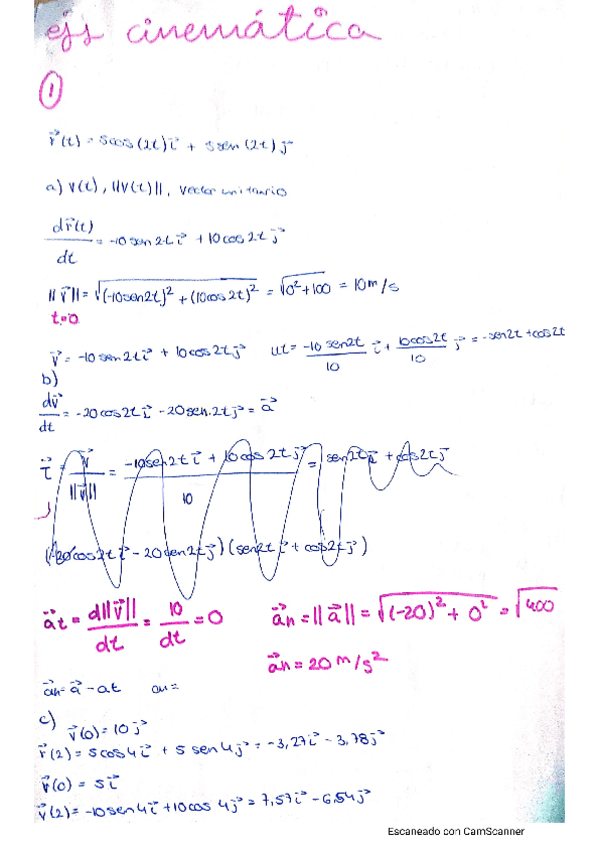 ejs cinemática
①
r⃗(t) = 5cos(2t)i⃗ + 5sen(2t)j⃗
a) v(t), ||v(t)||, vector unitario
dr⃗(t)/dt = -10sen2t i⃗ + 10cos2t j⃗
||v⃗|| = √((-10sen2t)² + (10cos2t)²) = √(0²+100) = 10m/s
t=0
v⃗ = -10sen2t i⃗ + 10cos2t j⃗   ut = -10sen2t/10 i⃗ + 10cos2t/10 j⃗ = -sen2t + cos2t
b)
dv⃗/dt = -20cos2t i⃗ - 20sen.2t j⃗ = a⃗
τ⃗ = v⃗/||v⃗|| = (-10sen2t i⃗ + 10cos2t j⃗)/10 = sen2t i⃗ + cos2t j⃗
(-20cos2t i⃗ - 20sen2t j⃗)(sen2t i⃗ + cos2t j⃗)
a⃗t = d||v⃗||/dt = 10/dt = 0   a⃗n = ||a⃗|| = √((-20)² + 0²) = √400
a⃗n = 20 m/s²
a⃗n = a⃗ - at   an =
c) v⃗(0) = 10j⃗
r⃗(2) = 5cos4i⃗ + 5sen4j⃗ = -3,27i⃗ - 3,78j⃗
r⃗(0) = 5i⃗
v⃗(2) = -10sen4i⃗ + 10cos4j⃗ = 7,57i⃗ - 6,54j⃗
Escaneado con CamScanner